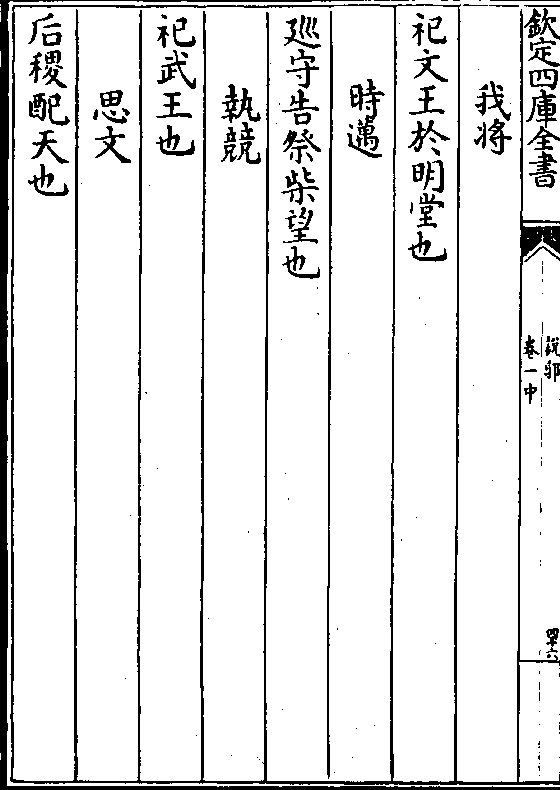 欽定四庫全書
說郛
卷一中
四十六
我將
祀文王於明堂也
時邁
廵守告祭柴望也
執競
祀武王也
思文
后稷配天也